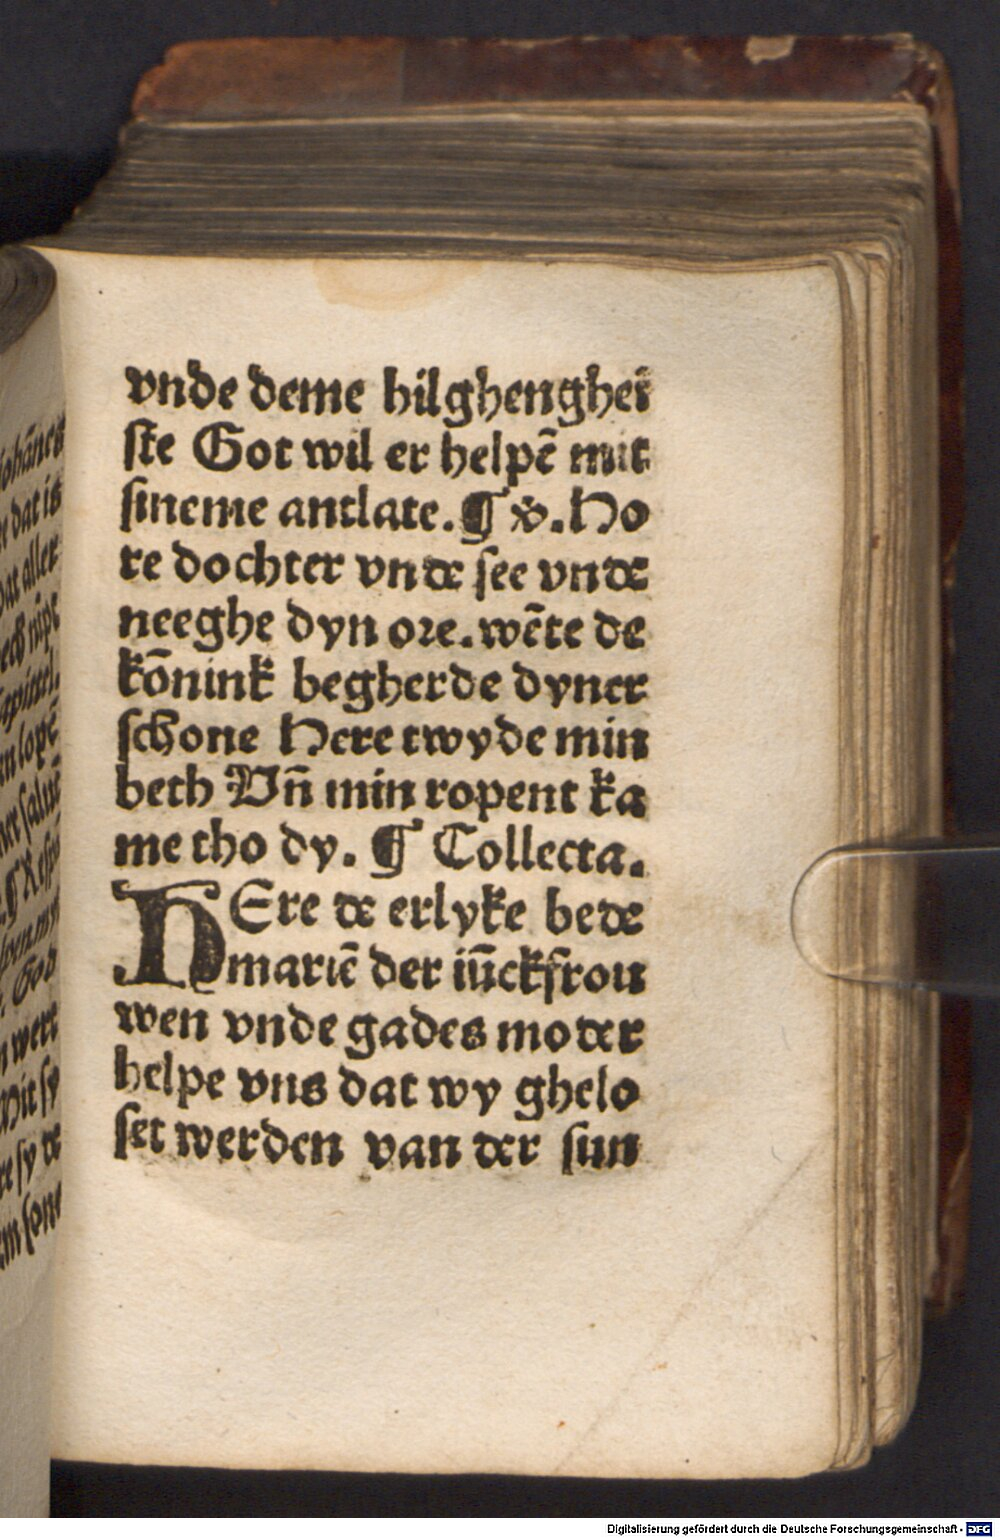 vnde deme hilghenghei
ste Got wil er helpē mit
sineme antlate. ¶ v̾. Ho
re dochter vnde see vnde
neeghe dyn ore. wēte de
kōnink begherde dyner
schone Here twyde min
beth Vn̄ min ropent ka
me tho dy. ¶ Collecta.
HEre de erlyke bede
mariē der iūckfrou
wen vnde gades moder
helpe vns dat wy ghelo
set werden van der sun
Digitalisierung gefördert durch die Deutsche Forschungsgemeinschaft - DFG